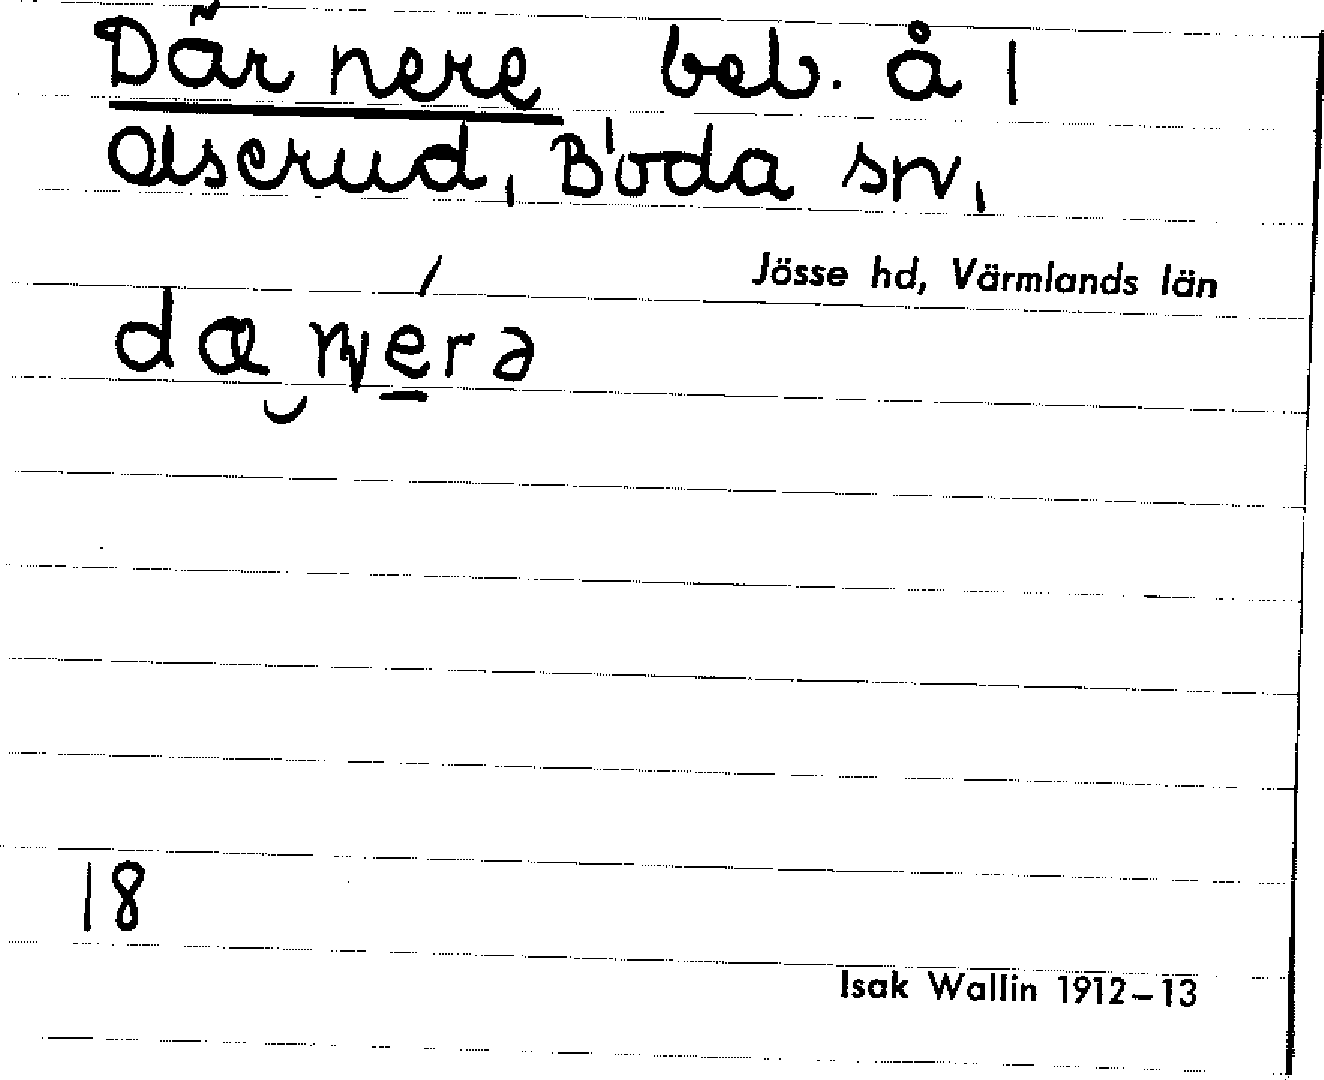 Där nere beb. å 1
Olserud, Boda sn,
Jösse hd, Värmlands län
18
Isak Wallin 1912–13